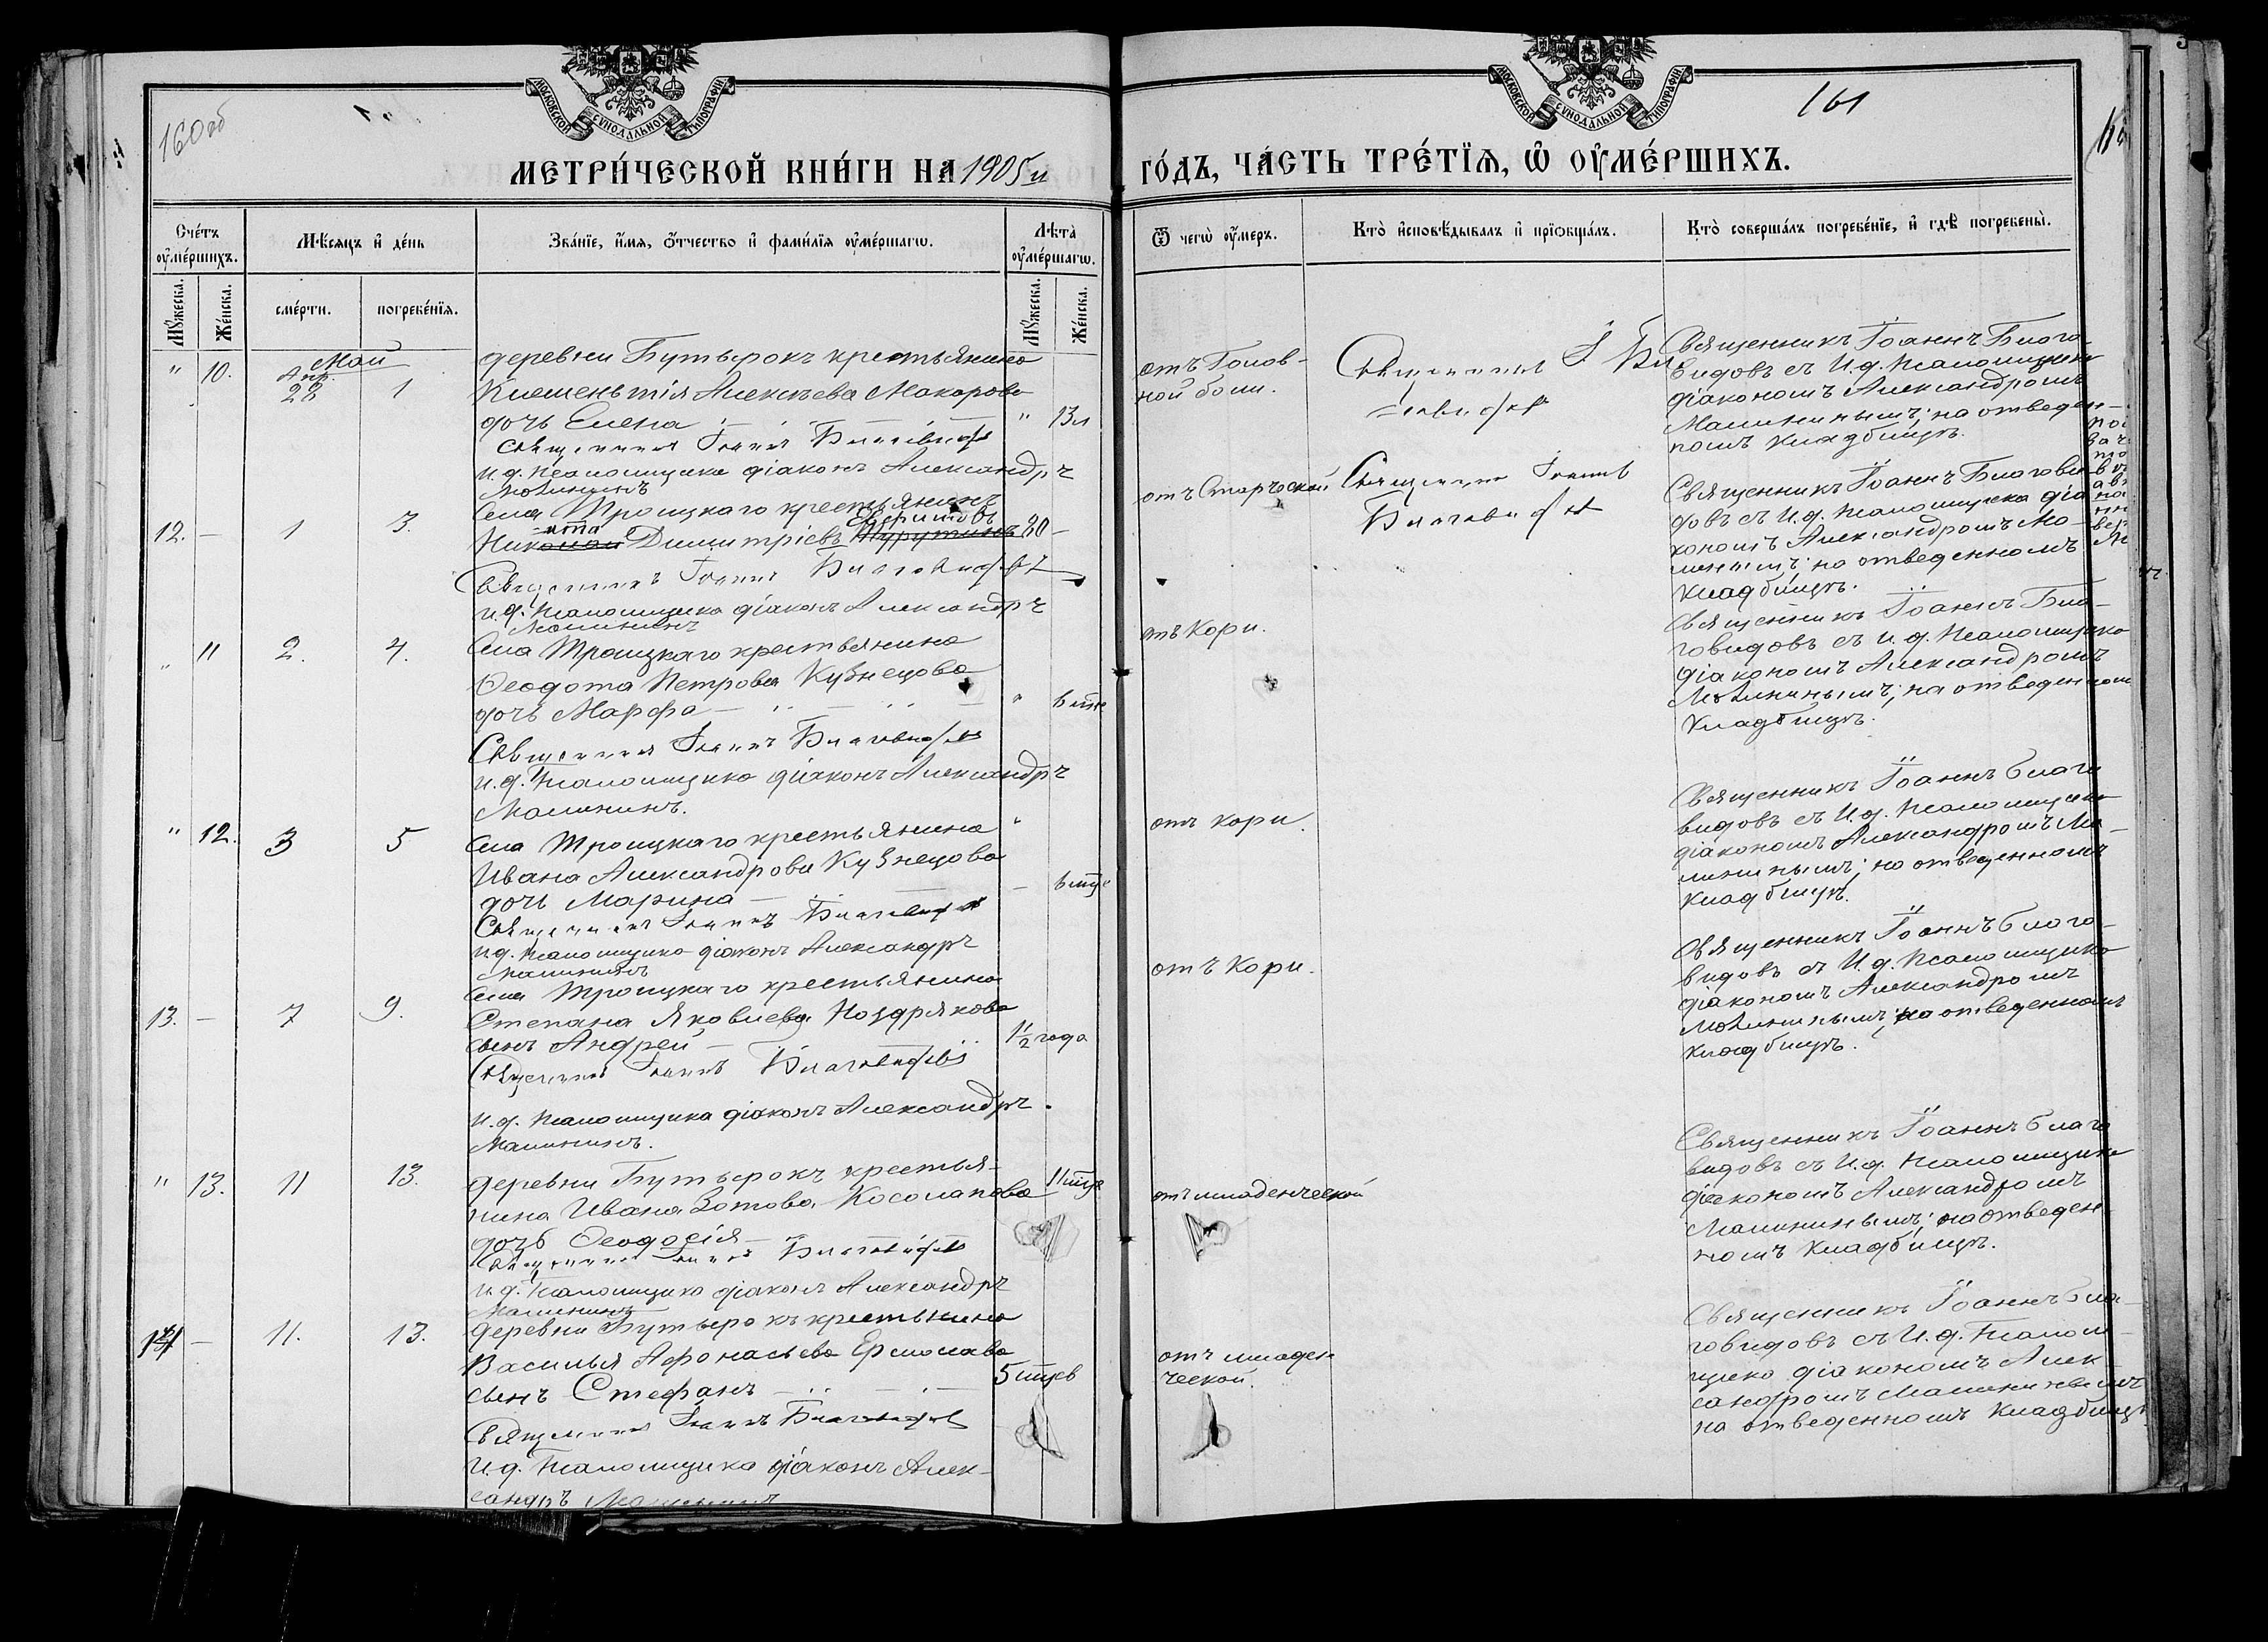 160об
161
МОСКОВСКОЙ СѴНОДАЛЬНОЙ ТИПОГРАФІИ
МОСКОВСКОЙ СѴНОДАЛЬНОЙ ТИПОГРАФІИ
МЕТРИ́ЧЕСКОЙ КНИ́ГИ НА 1905й
ГО́ДЪ, ЧА́СТЬ ТРЕ́ТІѦ, Ѡ ОУ҆МЕ́РШИХЪ.
Сче́тъ оу҆ме́ршихъ.
Мѣ́сѧцъ и҆ де́нь
Зва́нїе, и҆́мѧ, ѻ҆́тчество и҆ фами́лїѧ оу҆ме́ршагѡ.
Лѣ́та оу҆ме́ршагѡ.
Ѿ чегѡ̀ оу҆́меръ.
Кто̀ и҆сповѣ́дывалъ и҆ прїѡбща́лъ.
Кто̀ соверша́лъ погребе́нїе, и҆ гдѣ̀ погребены̀.
Мꙋ́жеска.
Же́нска.
сме́рти.
погребе́нїѧ.
Мꙋ́жеска.
Же́нска.
Май
" 10. Апр. 28 1
деревни Бутырокъ крестьянина
Клеменьтія Алексѣева Макарова
дочь Елена " 13л
Священникъ Іоаннъ Благовидовъ
И.д. псаломщика діаконъ Александръ
Малининъ
отъ Голов-
ной боли.
Священникъ І Бла
говидовъ
Священникъ Іоаннъ Благо-
видовъ съ И.д. псаломщика
діакономъ Александромъ
Малининымъ; на отведен-
номъ кладбищѣ.
12. - 1 3.
Села Троицкаго крестьянинъ
Никита Димитріевъ 80 -
Священникъ Іоаннъ Благовидовъ
И.д. псаломщика діаконъ Александръ
Малининъ
отъ Старческой
Священникъ Іоаннъ
Благовидовъ
Священникъ Іоаннъ Благови-
довъ съ И.д. псаломщика діа-
кономъ Александромъ Ма-
лининымъ; на отведенномъ
кладбищѣ.
" 11 2. 4.
Села Троицкаго крестьянина
Ѳеодота Петрова Кузнецова
дочь Марфа " 6 мѣс
Священникъ Іоаннъ Благовидовъ
И.д. псаломщика діаконъ Александръ
Малининъ.
отъ Кори.
Священникъ Іоаннъ Бла-
говидовъ съ И.д. псаломщика
діакономъ Александромъ
Малининымъ; на отведенномъ
кладбищѣ.
" 12. 3 5
Села Троицкаго крестьянина
Ивана Александрова Кузнецова
дочь Марина - 6 мѣс
Священникъ Іоаннъ Благовидовъ
И.д. псаломщика діаконъ Александръ
Малининъ
отъ кори.
Священникъ Іоаннъ Благо
видовъ съ И.д. псаломщика
діакономъ Александромъ Ма-
лининымъ; на отведенномъ
кладбищѣ.
13. - 7 9.
Села Троицкаго крестьянина
Степана Яковлева Ноздрякова
сынъ Андрей 1½ года
Священникъ Іоаннъ Благовидовъ
И.д. псаломщика діаконъ Александръ
Малининъ.
отъ Кори.
Священникъ Іоаннъ Благо-
видовъ съ И.д. псаломщика
діакономъ Александромъ
Малининымъ; на отведенномъ
кладбищѣ.
" 13. 11 13.
деревни Бутырокъ крестья-
нина Ивана Зотова Косолапова 11 мѣс
дочь Ѳеодосія
Священникъ Іоаннъ Благовидовъ
И.д. псаломщика діаконъ Александръ
Малининъ
отъ младенческой
Священникъ Іоаннъ Благо
видовъ съ И.д. псаломщика
діакономъ Александромъ
Малининымъ; на отведен-
номъ кладбищѣ.
14 - 11. 13.
деревни Бутырокъ крестьянина
Василья Афонасьева Ермолаева
сынъ Стефанъ 5 мѣсцев
Священникъ Іоаннъ Благовидовъ
И.д. псаломщика діаконъ Алек-
сандръ Малининъ
отъ младен
ческой.
Священникъ Іоаннъ Бла-
говидовъ съ И.д. псалом-
щика діакономъ Алек-
сандромъ Малининымъ
на отведенномъ кладбищѣ